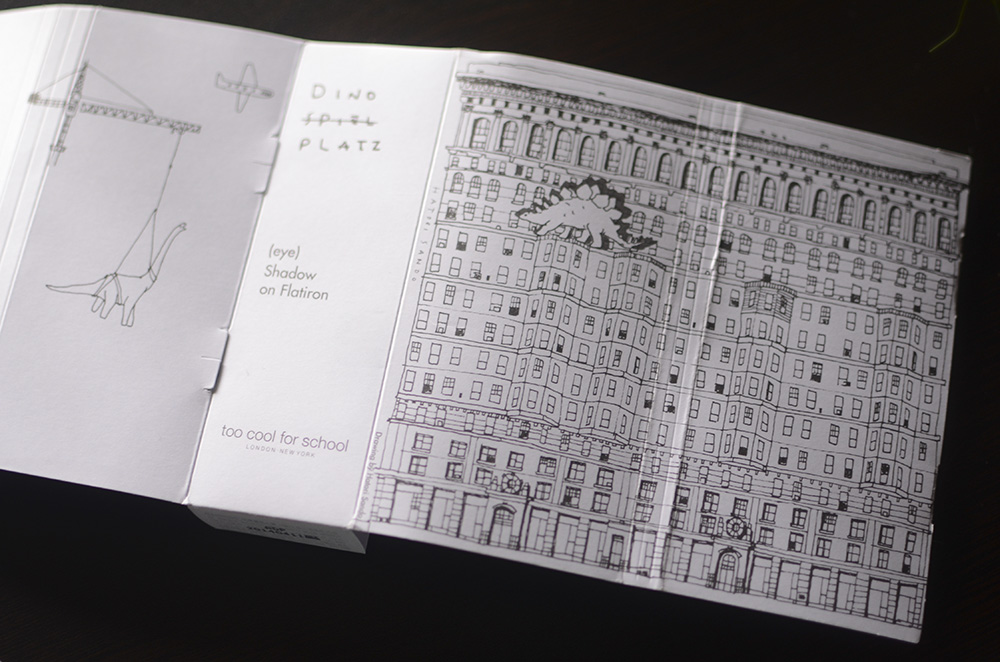 DINO
SPIEL
PLATZ
(eye)
Shadow
on Flatiron
too cool for school
LONDON NEW YORK
HATTEI SANDO
Drawing by Hatori Sando